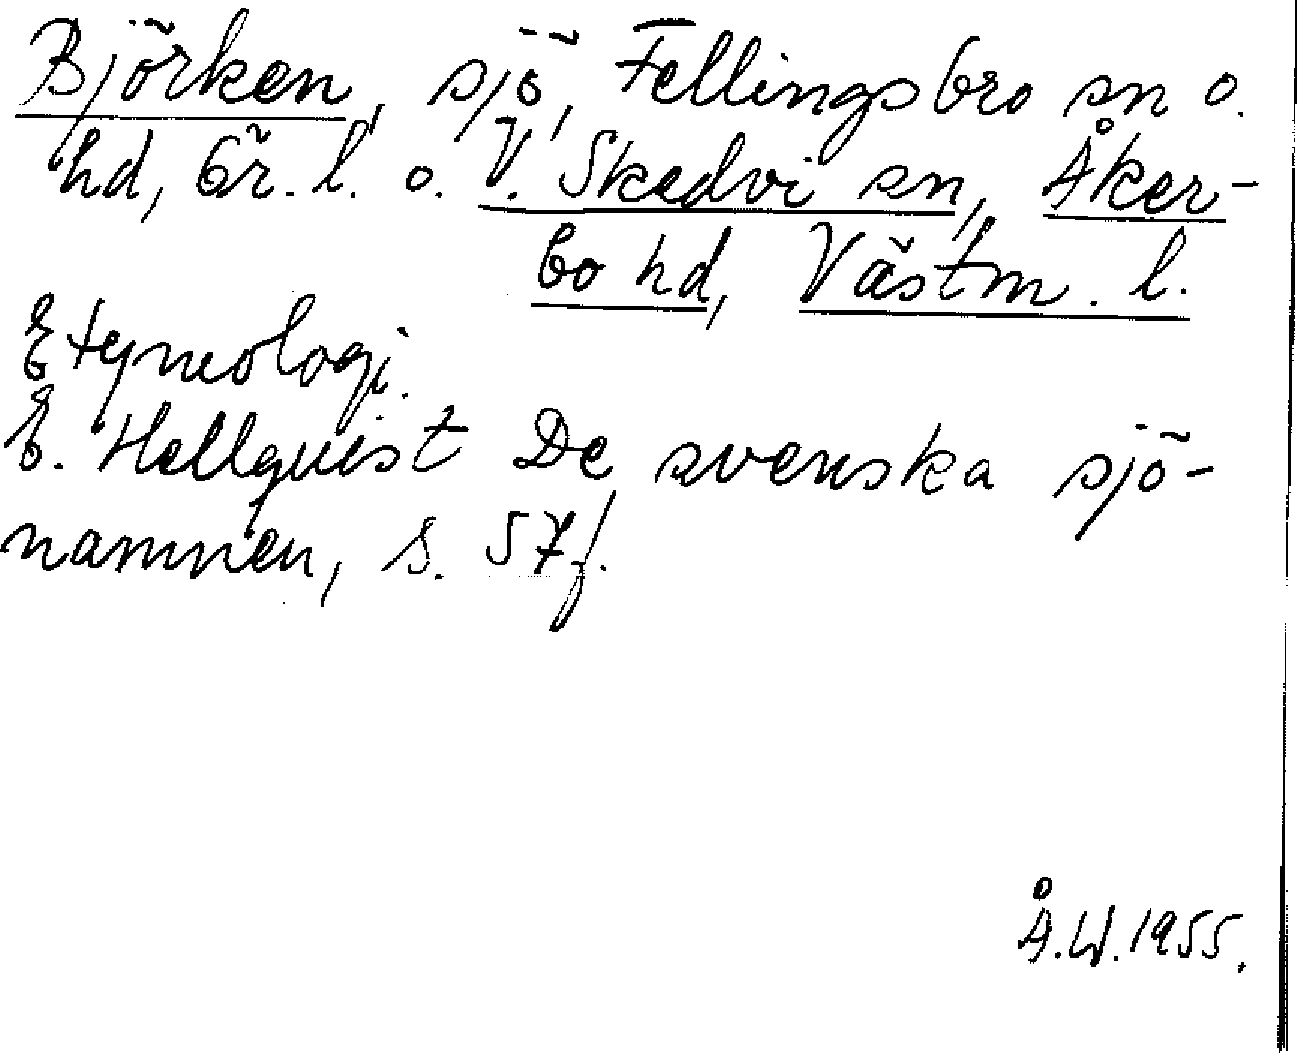 Björken, sjö, Fellingsbro sn o.
hd, Ör. l. o. V. Skedvi sn, Åker-
bo hd, Västm. l.
Etymologi.
E. Hellquist De svenska sjö-
namnen, s. 57f.
Å.W. 1955.